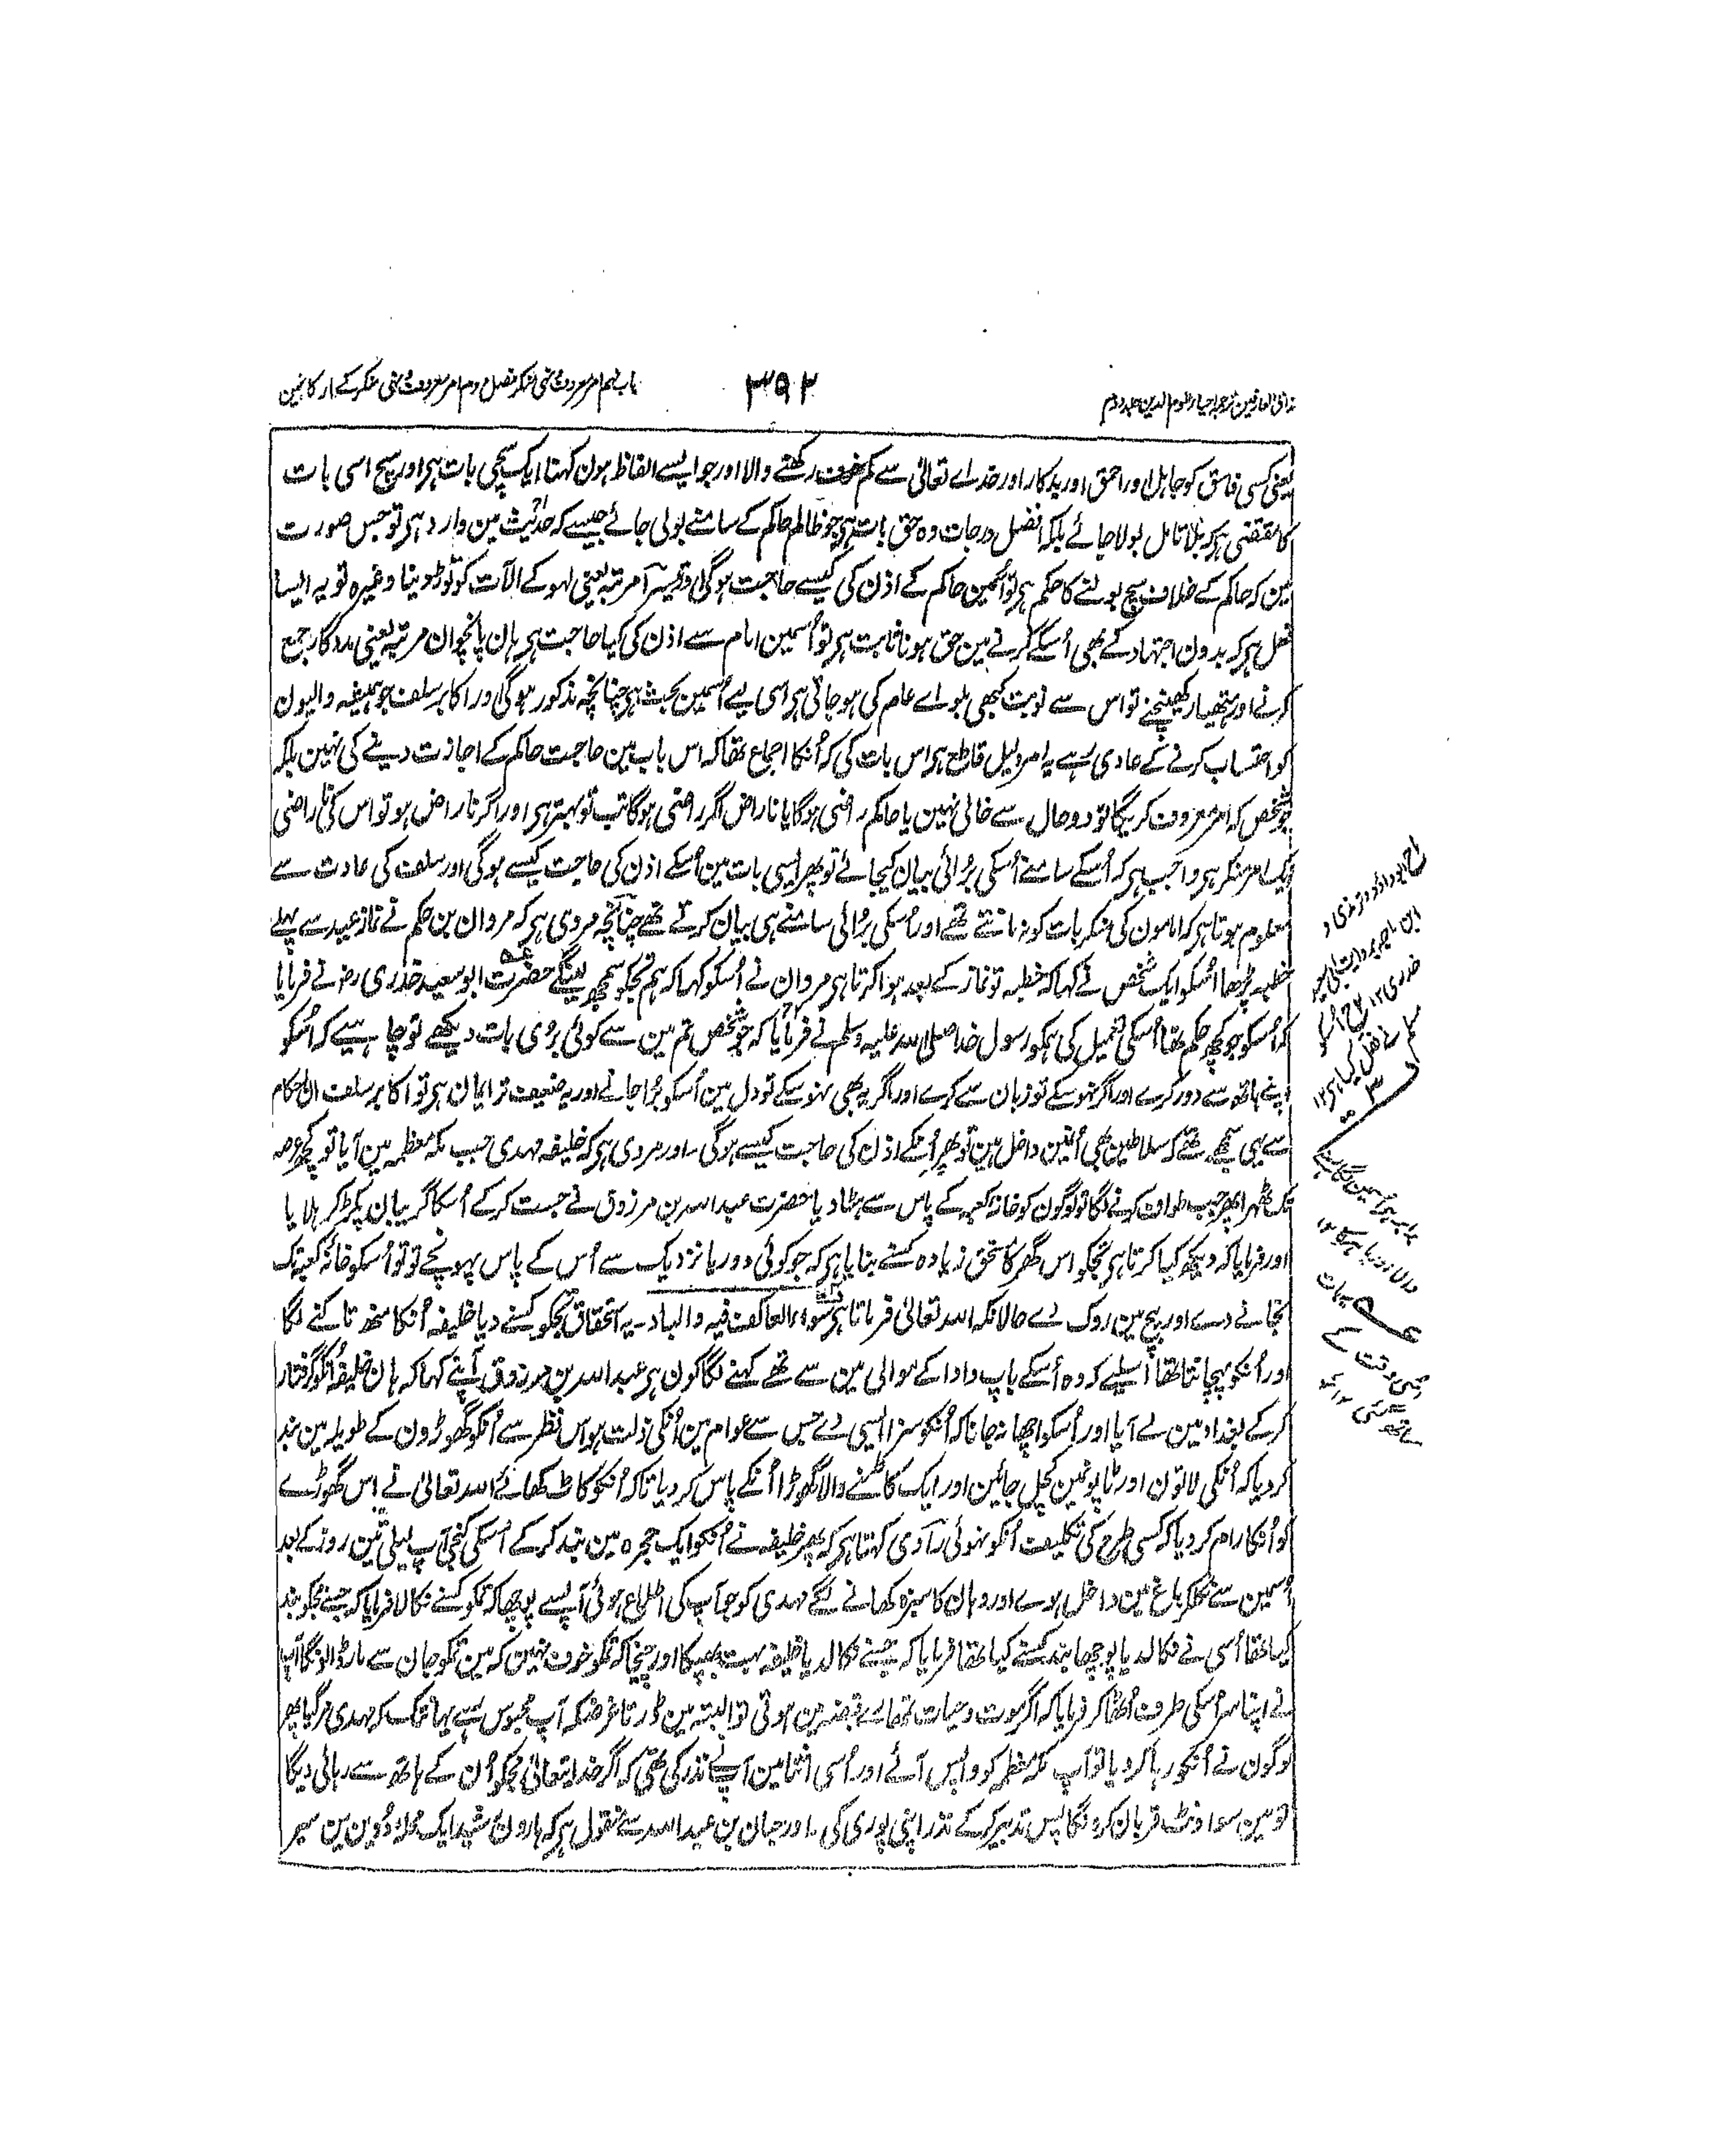 مذاق العارفین ترجمہ احیاء علوم الدین جلد دوم
۳۹۲
باب نہم امر معروف و نہی منکر فصل دوم امر معروف و نہی منکر کے ارکان مین
یعنی کسی فاسق کو جاہل اور احمق اور بدکار اور خداے تعالیٰ سے کم خوف رکھنے والا اور جو ایسے الفاظ ہون کہنا ایک سچی بات ہی اور سچ اسی بات
کا مقتضی ہی کہ بلا تامل بولا جائے بلکہ افضل درجات وہ حق بات ہی جو ظالم حاکم کے سامنے بولی جائے جیسے کہ حدیث مین وارد ہی تو جس صورت
مین کہ حاکم کے خلاف سچ بولنے کا حکم ہی تو اُسمین حاکم کے اذن کی کیسے حاجت ہوگی اور تیسرا مرتبہ یعنی لہو کے آلات کو توڑ دینا وغیرہ تو یہ ایسا
فعل ہی کہ بدون اجتہاد کے بھی اُسکے کرنے مین حق ہونا ثابت ہی تو اُسمین امام سے اذن کی کیا حاجت ہی ہان پانچوان مرتبہ یعنی مددگار جمع
کرنے اور ہتھیار کھینچنے تو اس سے نوبت کبھی بلواے عام کی ہو جاتی ہی اسی لیے اُسمین بحث ہی چنانچہ مذکور ہوگی اور اکابر سلف جو ہمیشہ والیون
کو احتساب کرنے کے عادی رہے یہ امر دلیل قاطع ہی اس بات کی کہ اُنکا اجماع تھا کہ اس باب مین حاجت حاکم کے اجازت دینے کی نہین بلکہ
جو شخص کہ امر معروف کریگا تو دو حال سے خالی نہین یا حاکم راضی ہوگا یا ناراض اگر راضی ہوگا تب تو بہتر ہی اور اگر ناراض ہو تو اس کی ناراضی
ایک امر منکر ہی واجب ہی کہ اُسکے سامنے اُسکی بُرائی بیان کیجائے تو پھر ایسی بات مین اُسکے اذن کی حاجت کیسے ہوگی اور سلف کی عادت سے
معلوم ہوتا ہی کہ امامون کی منکر بات کو نہ مانتے تھے اور اُسکی بُرائی سامنے ہی بیان کرتے تھے چنانچہ مروی ہی کہ مروان بن حکم نے نماز عید سے پہلے
خطبہ پڑھا اُسکو ایک شخص نے کہا کہ خطبہ تو نماز کے بعد ہوا کرتا ہی مروان نے اُسکو کہا کہ ہم تجکو سمجھ لینگے حضرت ابو سعید خدری رضہ نے فرمایا
کہ اُسکو جو کچھ حکم تھا اُسکی تعمیل کی ہمکو رسول خدا صلی اللہ علیہ وسلم نے فرمایا کہ جو شخص تم مین سے کوئی بری بات دیکھے تو چاہیے کہ اُسکو
اپنے ہاتھ سے دور کرے اور اگر نہوسکے تو زبان سے کرے اور اگر یہ بھی نہوسکے تو دل مین اُسکو بُرا جانے اور یہ ضعیف تر ایمان ہی تو اکابر سلف ان احکام
سے یہی سمجھے تھے کہ سلاطین بھی اُنمین داخل ہین تو پھر اُنکے اذن کی حاجت کیسے ہوگی۔ اور مروی ہی کہ خلیفہ مہدی جب مکہ معظمہ مین آیا تو کچھ عرصہ
تک ٹھہرا پھر جب طواف کرنے لگا تو لوگون کو خانہ کعبہ کے پاس سے ہٹا دیا حضرت عبد اللہ بن مرزوق نے جست کر کے اُسکا گریبان پکڑ کر ہلایا
اور فرمایا کہ دیکھ کیا کرتا ہی تجکو اس گھر کا مستحق زیادہ کسنے بنایا ہی کہ جو کوئی دور یا نزدیک سے اُس کے پاس پہونچے تو تو اُسکو خانہ کعبہ تک
نجانے دے اور بیچ مین روک لے حالانکہ اللہ تعالیٰ فرماتا ہی سواء العاکف فیہ والباد۔ یہ استحقاق تجکو کسنے دیا خلیفہ اُنکا منھ تاکنے لگا
اور اُنکو پہچانتا تھا اسلیے کہ وہ اُسکے باپ دادا کے موالی مین سے تھے کہنے لگا کون ہی عبد اللہ بن مرزوق آپنے کہا کہ ہان خلیفہ اُنکو گرفتار
کر کے بغداد مین لے آیا اور اُسکو اچھا نہ جانا کہ اُنکو سزا ایسی دے جس سے عوام مین اُنکی ذلت ہو اس نظر سے اُنکو گھوڑون کے طویلہ مین بند
کر دیا کہ اُنکی لاتون اور ٹاپونمین کچل جائین اور ایک کاٹنے والا گھوڑا اُنکے پاس کر دیا تاکہ اُنکو کاٹ کھائے اللہ تعالیٰ نے اس گھوڑے
کو اُنکا رام کر دیا کہ کسی طرح کی تکلیف اُنکو نہوئی راوی کہتا ہی کہ پھر خلیفہ نے اُنکو ایک حجرہ مین بند کر کے اُسکی کنجی آپ لیلی تین روز کے بعد
اُسمین سے نکلکر باغ مین داخل ہوے اور وہان کا سبزہ کھانے لگے مہدی کو جو آپ کی اطلاع ہوئی آپسے پوچھا کہ تمکو کسنے نکالا فرمایا کہ جسنے مجکو بند
کیا تھا اُسی نے نکالدیا پوچھا بند کسنے کیا تھا فرمایا کہ جسنے نکالدیا خلیفہ بہت بھبکا اور چیخا کہ تمکو خوف نہین کہ مین تمکو جان سے مار ڈالونگا آپ
نے اپنا سر اُسکی طرف اُٹھا کر فرمایا کہ اگر موت وحیات تمھارے قبضہ مین ہوتی تو البتہ مین ڈرتا غرضکہ آپ محبوس رہے یہانتک کہ مہدی مر گیا پھر
لوگون نے اُنکو رہا کر دیا تو آپ مکہ معظمہ کو واپس آئے اور اُسی اثنا مین آپنے نذر کی تھی کہ اگر خداتعالیٰ مجکو اُن کے ہاتھ سے رہائی دیگا
تو مین سو اونٹ قربان کرونگا پس تدبیر کر کے نذر اپنی پوری کی۔ اور حبان بن عبد اللہ سے منقول ہی کہ ہارون رشید ایک مرتبہ دُوین مین سیر
ابو داؤد و ترمذی و
ابن ماجہ بروایت ابی سعید
خدری ۱۲